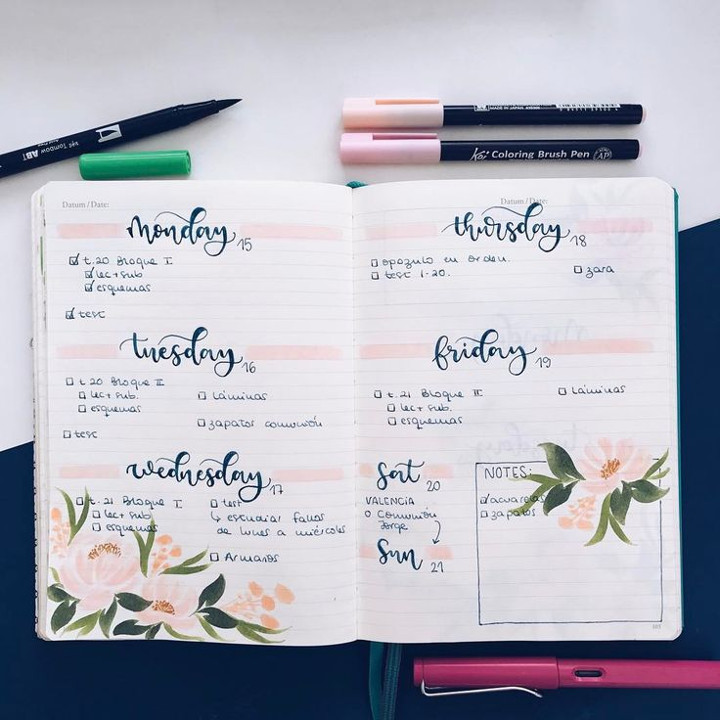 Tombow ABT
Koi Coloring Brush Pen AP
Datum / Date:
monday 15
t.20 Bloque I
lec + sub
esquemas
test
tuesday 16
t 20 Bloque II
lec + sub.
esquemas
test
láminas
zapatos comunión
wednesday 17
t. 21 Bloque I
lec + sub
esquemas
test
↳ estudiar fallos
de lunes a miércoles
Armarios
Datum / Date:
thursday 18
opozulo en orden.
test 1-20.
zara
friday 19
t. 21 Bloque II
lec + sub.
esquemas
láminas
Sat 20
VALENCIA
Comunión
Jorge
Sun 21
NOTES:
acuarelas
zapatos